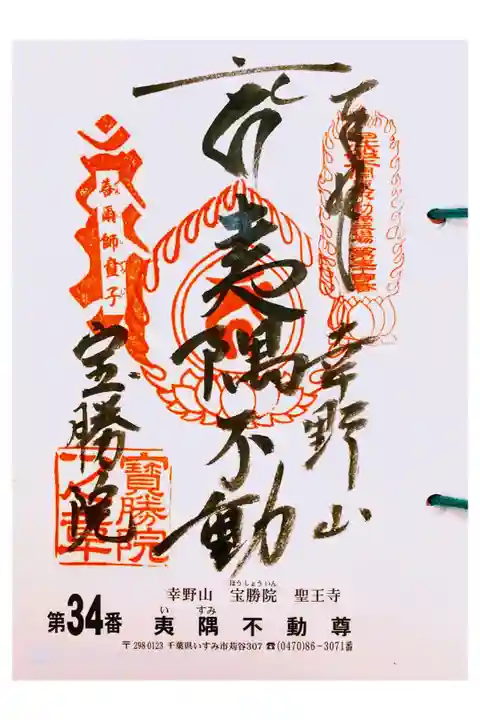 奉拝
幸野山
夷隅不動
宝勝院
春雨師童子
寶勝院
幸野山 宝勝院 聖王寺
ほうしょういん
第34番 夷隅不動尊
い すみ
〒298-0123 千葉県いすみ市苅谷307 ☎(0470)86-3071番